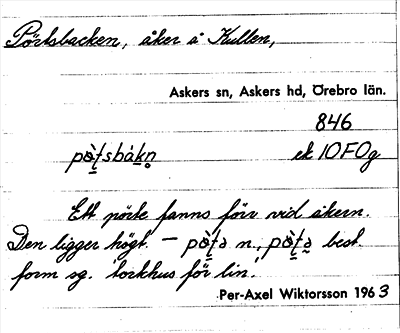 Pörtsbacken, åker å Kullen,
Askers sn, Askers hd, Örebro län.
846
pɵ̀ʈsbàkn̥ ek 10F0g
Ett pörte fanns förr vid åkern.
Den ligger högt. – pɵ̀ʈə n., pɵ̀ʈə̠ best.
form sg. 'torkhus för lin.'
Per-Axel Wiktorsson 1963